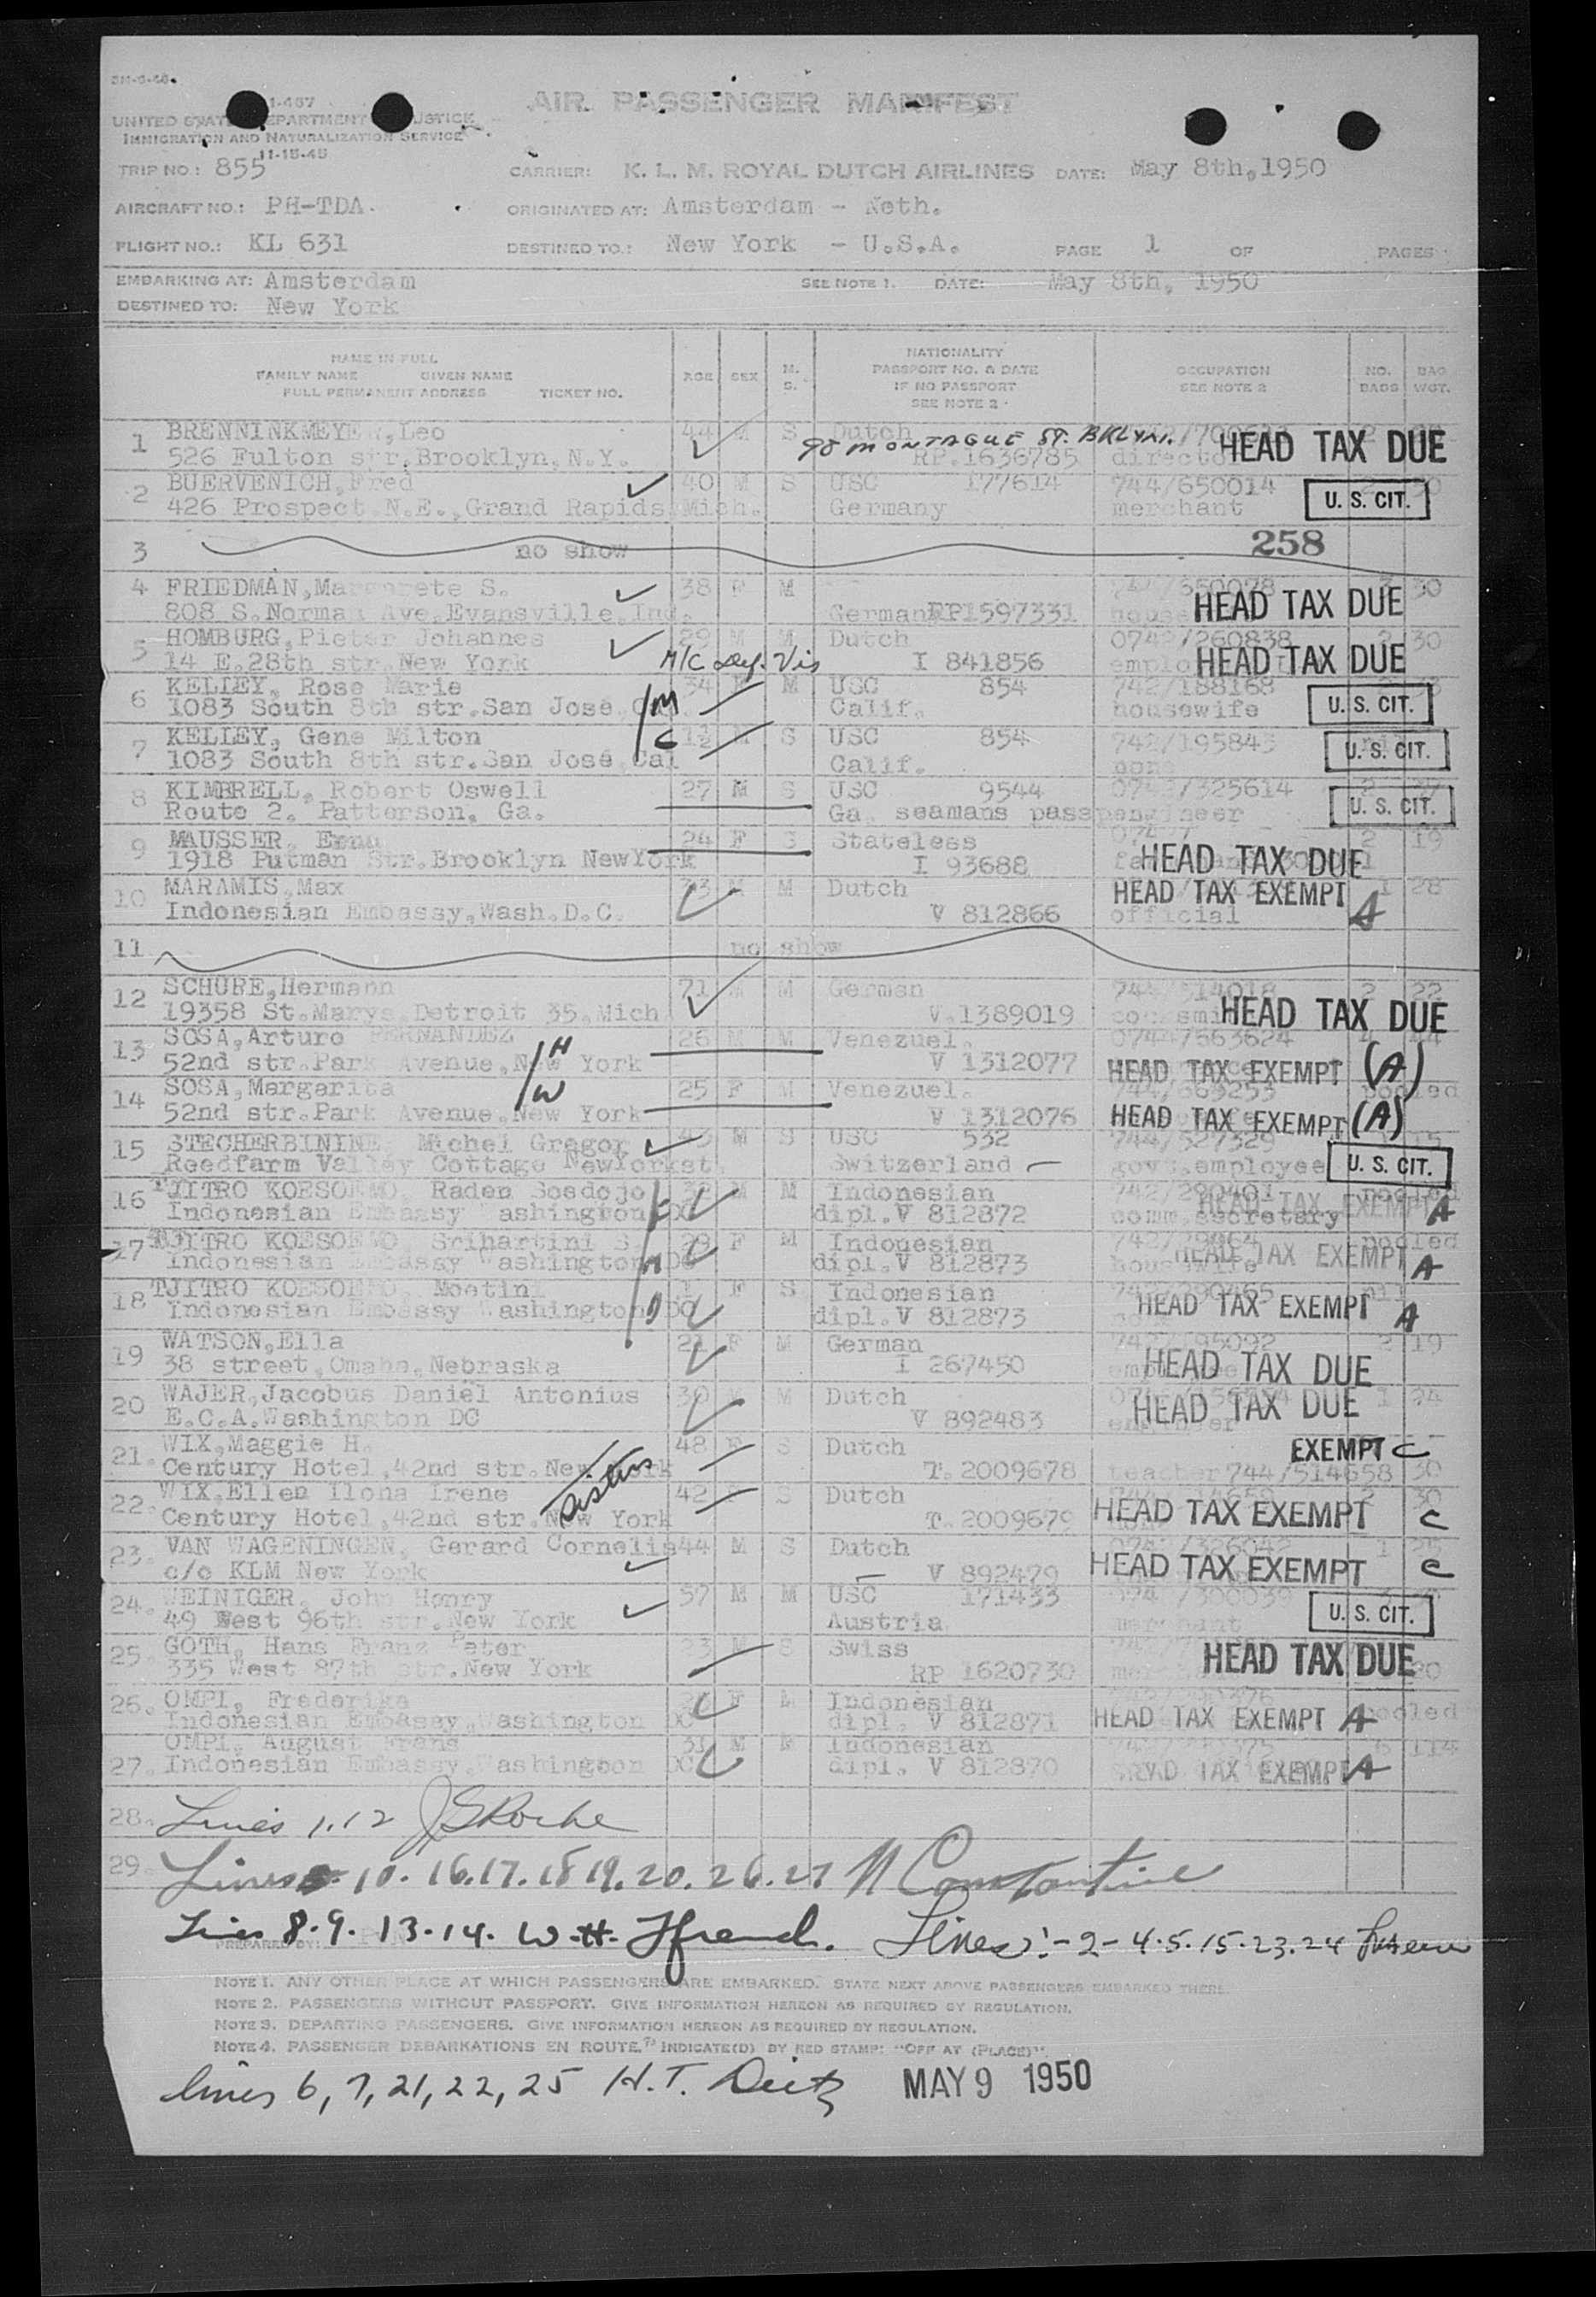 AIR PASSENGER MANIFEST
UNITED STATES DEPARTMENT JUSTICE
IMMIGRATION AND NATURALIZATION SERVICE
11-15-45
TRIP NO.: 855 CARRIER: K. L. M. ROYAL DUTCH AIRLINES DATE: May 8th,1950
AIRCRAFT NO.: PH-TDA. ORIGINATED AT: Amsterdam - Neth.
FLIGHT NO.: KL 631 DESTINED TO.: New York - U.S.A. PAGE 1 OF PAGES
EMBARKING AT: Amsterdam SEE NOTE 1. DATE: May 8th, 1950
DESTINED TO: New York
NAME IN FULL
FAMILY NAME GIVEN NAME
FULL PERMANENT ADDRESS TICKET NO.
AGE SEX M. S.
NATIONALITY
PASSPORT NO. & DATE
IF NO PASSPORT
SEE NOTE 2
OCCUPATION
SEE NOTE 2
NO. BAGS
BAG WGT.
1 BRENNINKMEYE ,Leo 44 M S Dutch
98 MONTAGUE ST. BKLYN. HEAD TAX DUE
526 Fulton str.Brooklyn, N.Y. RP.1636785
2 BUERVENICH,Fred 40 M S USC 177614 744/650014
426 Prospect N.E.,Grand Rapids Mich. Germany merchant U. S. CIT.
3 no show 258
4 FRIEDMAN,Margarete S. 38 F M 30
808 S.Norman Ave.Evansville Ind. German RP1597331 HEAD TAX DUE
5 HOMBURG,Pieter Johannes 29 M M Dutch 0742/260838 2 30
14 E.28th str.New York M/C Vis I 841856 HEAD TAX DUE
6 KELLEY, Rose Marie 34 F M USC 854 742/188168
1083 South 8th str.San José Cal. M Calif. housewife U. S. CIT.
7 KELLEY, Gene Milton 1½ M S USC 854 742/195843
1083 South 8th str.San José,Cal C Calif. none U. S. CIT.
8 KIMBRELL, Robert Oswell 27 M S USC 9544 0742/325614 2
Route 2, Patterson, Ga. Ga. seamans pass engineer U. S. CIT.
9 MAUSSER, Erna 24 F S Stateless 2 19
1918 Putman Str.Brooklyn NewYork I 93688 HEAD TAX DUE
10 MARAMIS,Max 33 M M Dutch HEAD TAX EXEMPT A 1 28
Indonesian Embassy,Wash.D.C. V 812866 official
11 no show
12 SCHURE,Hermann 71 M M German 744/514018 2 22
19358 St.Marys Detroit 35,Mich V.1389019 HEAD TAX DUE
13 SOSA,Arturo FERNANDEZ 26 M M Venezuel. 0744/563624 4 44
52nd str.Park Avenue,New York H V 1312077 HEAD TAX EXEMPT (A)
14 SOSA,Margarita 25 F M Venezuel. pooled
52nd str.Park Avenue,New York W V 1312076 HEAD TAX EXEMPT (A)
15 STECHERBININE Michel Gregor M S USC 532 744/527329 15
Reedfarm Valley Cottage NewYorkst Switzerland govt.employee U. S. CIT.
16 TJITRO KOESOEMO, Raden Soedojo 32 M M Indonesian 742/290401 pooled
Indonesian Embassy Washington DC dipl.V 812872 comm.secretary HEAD TAX EXEMPT A
17 TJITRO KOESOEMO Srihartini S 29 F M Indonesian pooled
Indonesian Embassy Washington DC dipl.V 812873 housewife HEAD TAX EXEMPT A
18 TJITRO KOESOEMO, Moetin 1 F S Indonesian 742/290465 nil
Indonesian Embassy Washington DC dipl.V 812873 HEAD TAX EXEMPT A
19 WATSON,Ella 21 F M German 742/195092 2 19
38 street,Omaha,Nebraska I 267450 HEAD TAX DUE
20 WAJER,Jacobus Daniël Antonius 30 M M Dutch 1 24
E.C.A.Washington DC V 892483 engineer HEAD TAX DUE
21. WIX,Maggie H. 48 F S Dutch EXEMPT C
Century Hotel,42nd str.New York sisters T.2009678 teacher744/514658 30
22. WIX,Ellen Ilona Irene 42 F S Dutch 2 30
Century Hotel,42nd str.New York T.2009679 HEAD TAX EXEMPT C
23. VAN WAGENINGEN, Gerard Cornelis 44 M S Dutch 0742/326042 1 25
c/o KLM New York V 892479 HEAD TAX EXEMPT C
24. WEINIGER, John Henry 57 M M USC 171433
49 West 96th str.New York Austria merchant U. S. CIT.
25. GOTH, Hans Franz Peter 23 M S Swiss
335 West 87th str.New York RP 1620730 HEAD TAX DUE 20
26. OMPI, Frederika F M Indonesian
Indonesian Embassy,Washington DC dipl. V 812871 HEAD TAX EXEMPT A pooled
27. OMPI, August Frans 31 M M Indonesian 6 114
Indonesian Embassy,Washington DC dipl. V 812870 HEAD TAX EXEMPT A
28. Lines 1.12 JSRoche
29. Lines 10.16.17.18 19.20.26.27 Constantine
Lines 8.9.13.14. W.H. Ffrench. Lines:-2-4.5.15.23.24
PREPARED BY:
NOTE 1. ANY OTHER PLACE AT WHICH PASSENGERS ARE EMBARKED. STATE NEXT ABOVE PASSENGERS EMBARKED THERE.
NOTE 2. PASSENGERS WITHOUT PASSPORT. GIVE INFORMATION HEREON AS REQUIRED BY REGULATION.
NOTE 3. DEPARTING PASSENGERS. GIVE INFORMATION HEREON AS REQUIRED BY REGULATION.
NOTE 4. PASSENGER DEBARKATIONS EN ROUTE. INDICATE(D) BY RED STAMP: "OFF AT (PLACE)".
lines 6,7,21,22,25 H.T. Deitz MAY 9 1950